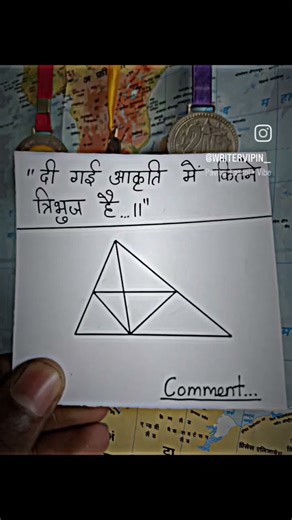 @WRITERVIPIN_
"दी गई आकृति में कितने
त्रिभुज है...॥"
Comment...